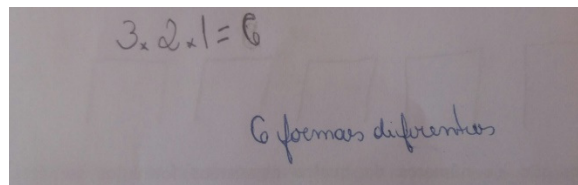 3 x 2 x 1 = 6
6 formas diferentes